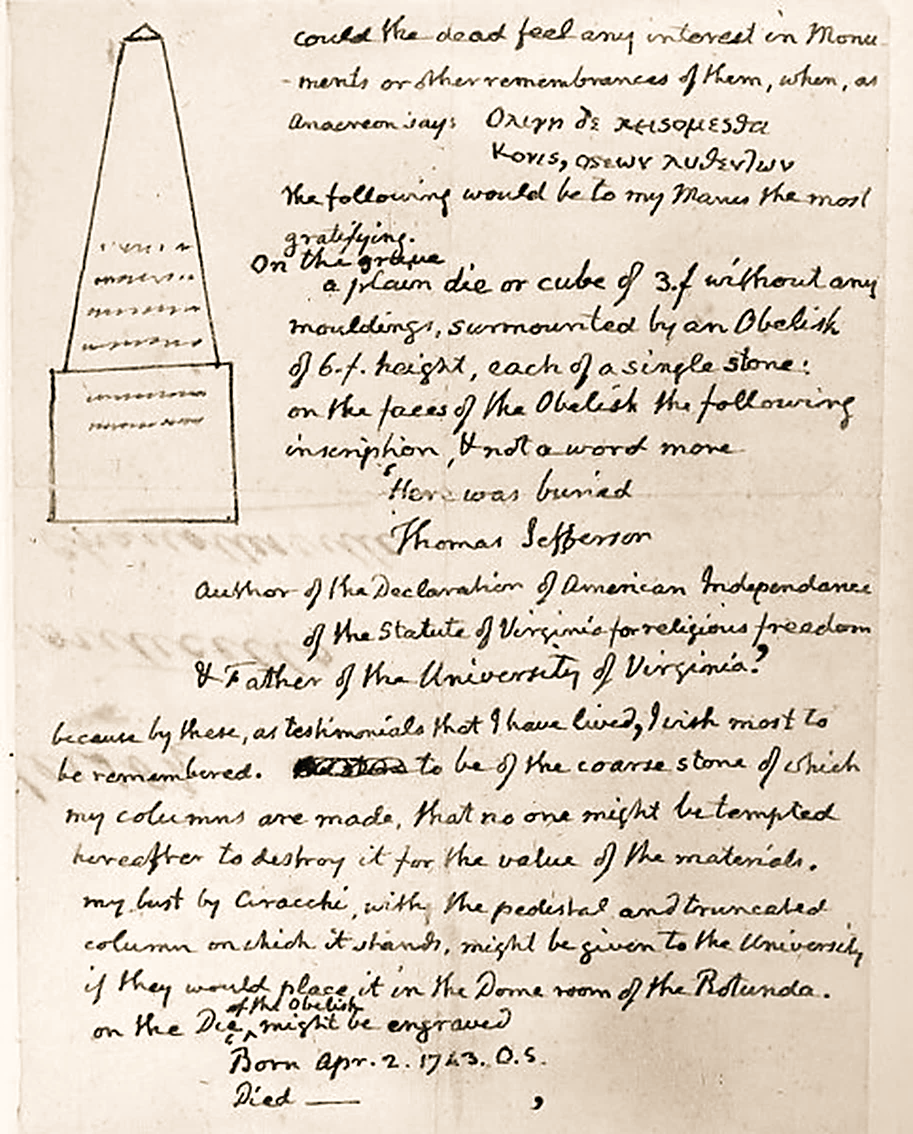 could the dead feel any interest in Monu-
-ments or other remembrances of them, when, as
Anacreon says: Ολιγη δε κεισομεσθα
Κονις, οςεων λυθεντων
the following would be to my Manes the most
gratifying.
On the grave
a plain die or cube of 3.f without any
mouldings, surmounted by an Obelisk
of 6.f. height, each of a single stone:
on the faces of the Obelisk the following
inscription, & not a word more
'Here was buried
Thomas Jefferson
Author of the Declaration of American Independance
of the Statute of Virginia for religious freedom
& Father of the University of Virginia.'
because by these, as testimonials that I have lived, I wish most to
be remembered. to be of the coarse stone of which
my columns are made, that no one might be tempted
hereafter to destroy it for the value of the materials.
my bust by Ciracchi, with the pedestal and truncated
column on which it stands, might be given to the University
if they would place it in the Dome room of the Rotunda.
of the Obelisk
on the Die ^ might be engraved
'Born Apr. 2. 1743. O.S.
Died —— '